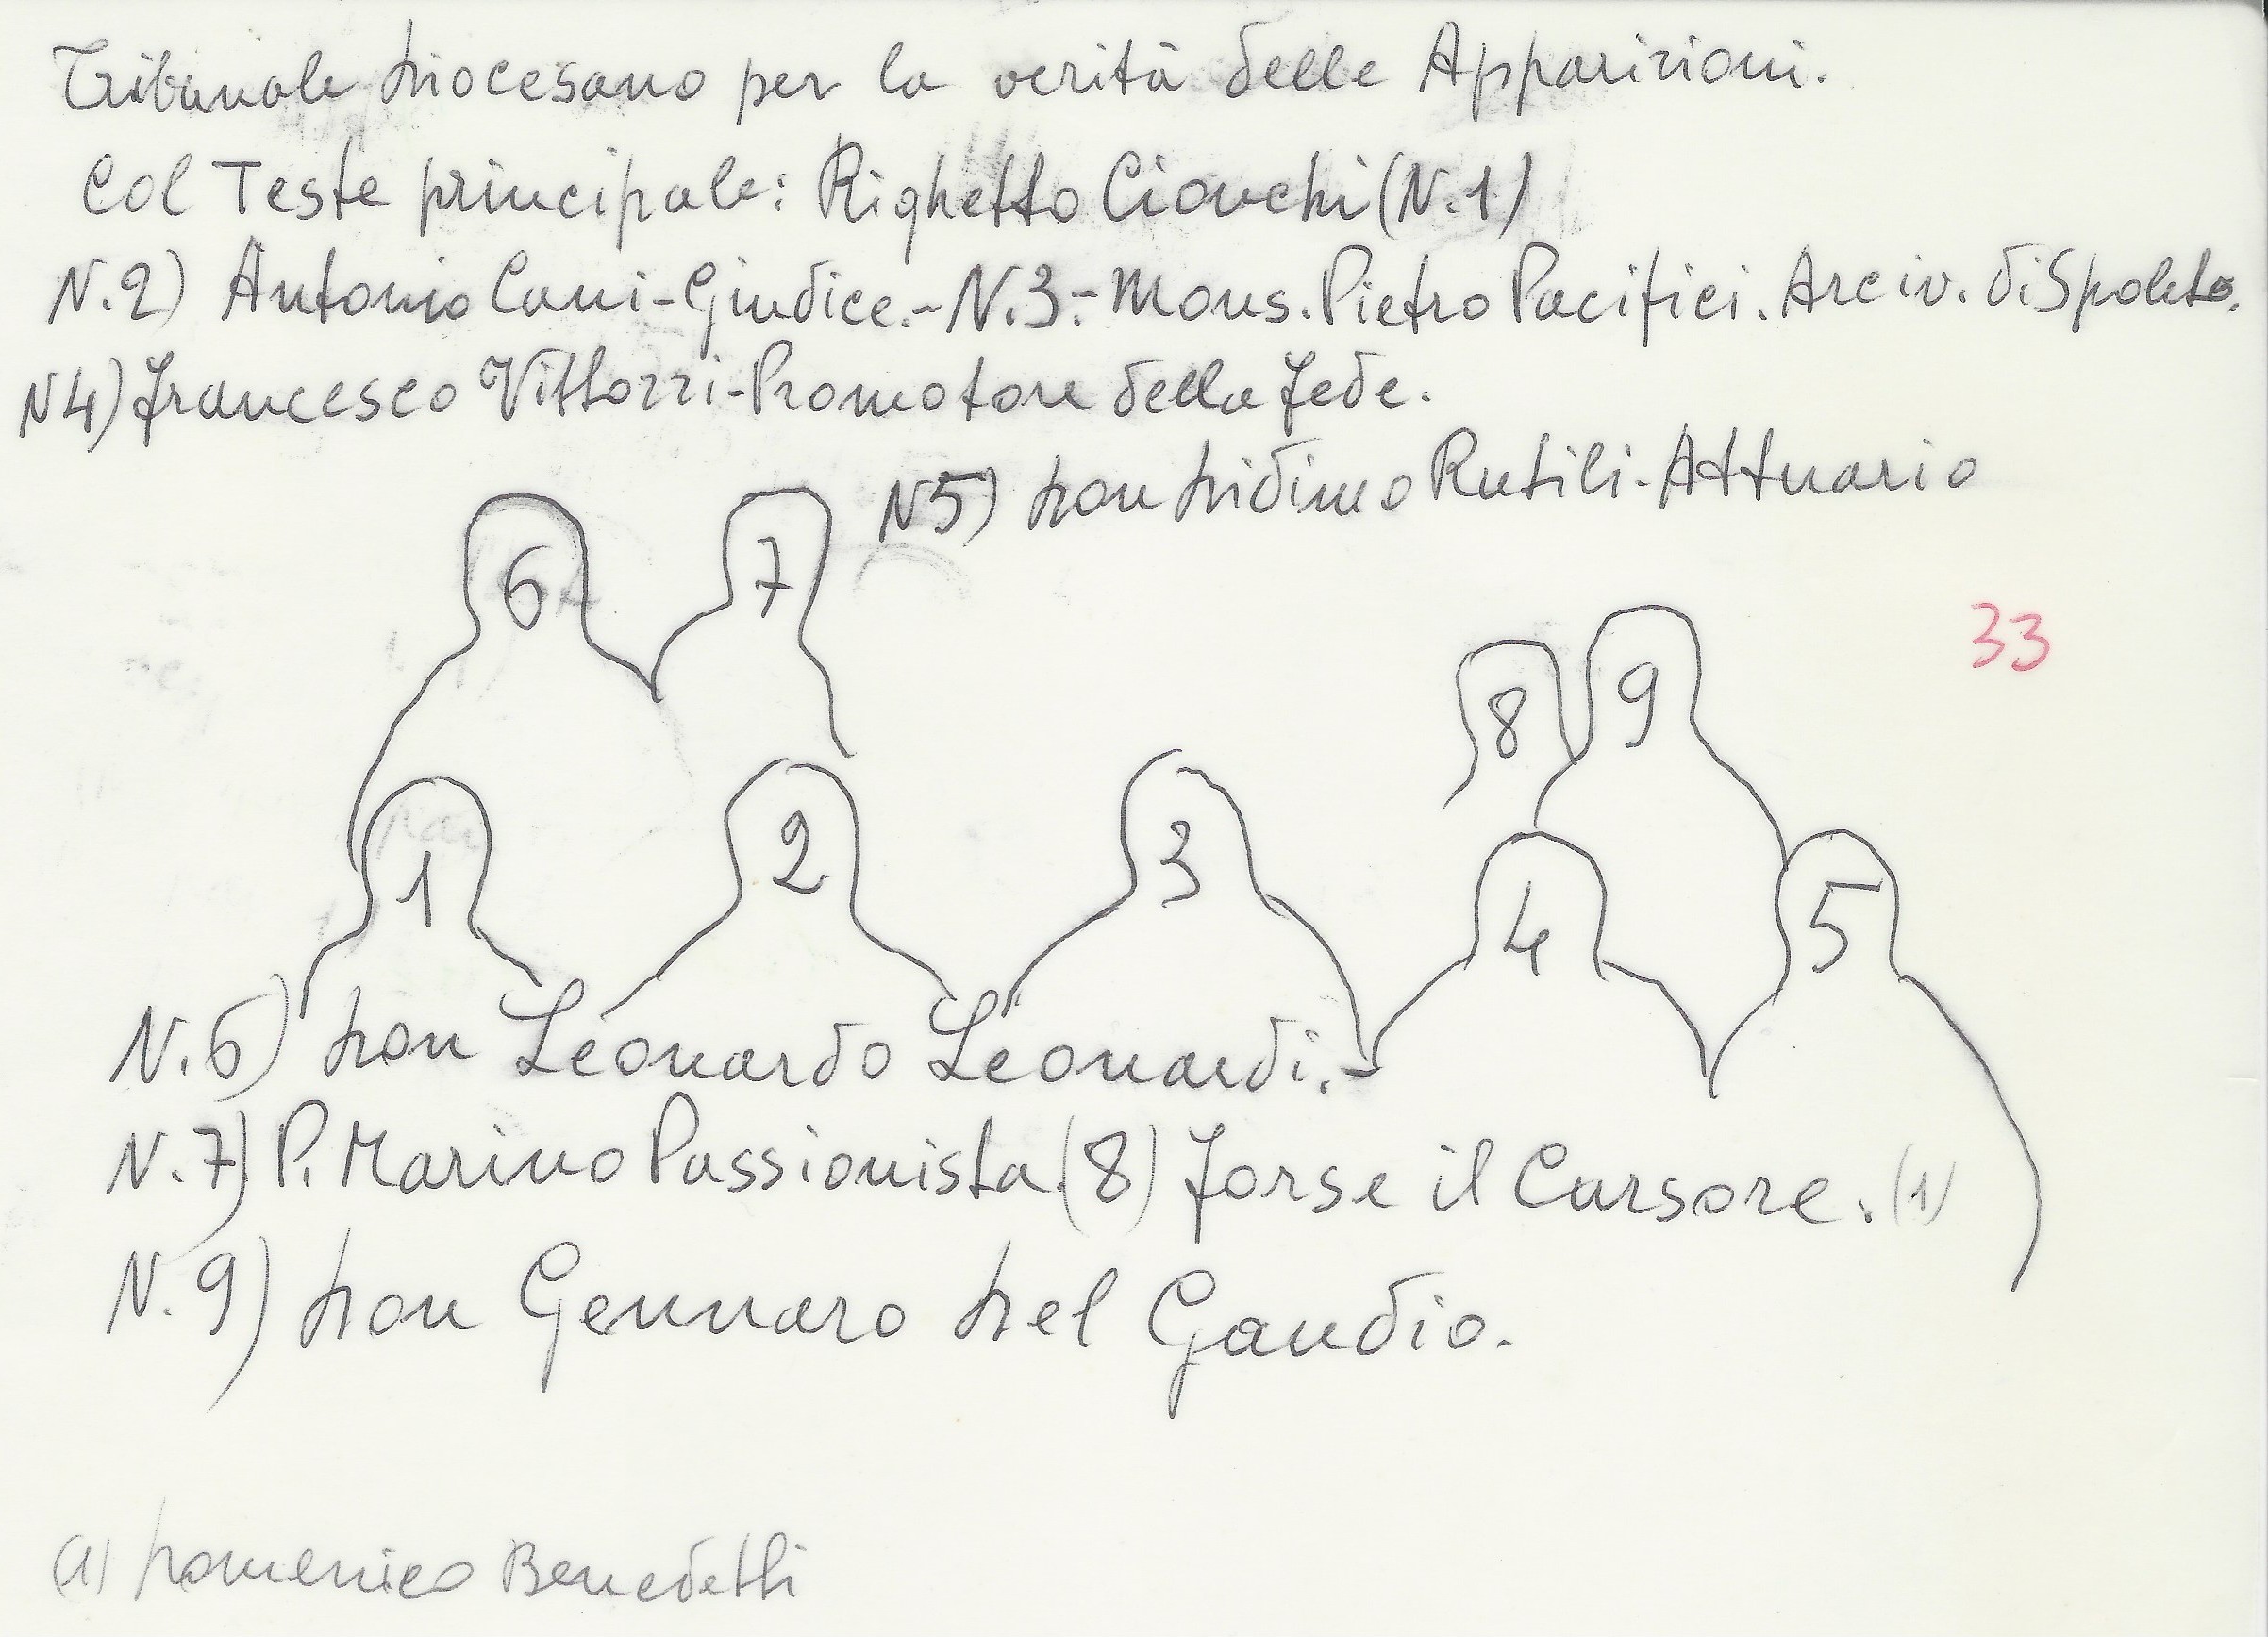 Tribunale Diocesano per la verità delle Apparizioni.
Col Teste principale: Righetto Cionchi (N.1)
N.2) Antonio Cani-Giudice.-N.3.-Mons. Pietro Pacifici. Arciv. di Spoleto.
N4) Francesco Vittorzi-Promotore della Fede.
N5) Don Didimo Rutili-Attuario
6
7
33
8
9
1
2
3
4
5
N.6) Don Leonardo Leonardi.-
N.7) P. Marino Passionista (8) Forse il Cursore. (1)
N.9) Don Gennaro Del Gaudio.
(1) Domenico Benedetti